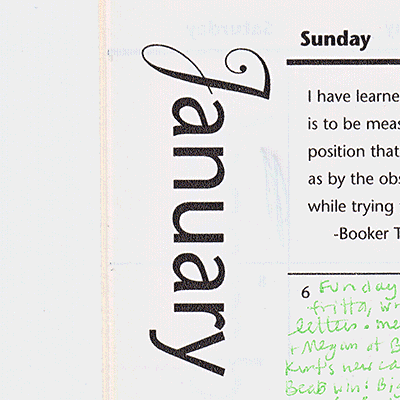 January
Sunday
I have learne
is to be meas
position that
as by the obs
while trying
-Booker T
6 Funday
fritta, wr
letters. me
+ Megan at B
Kurt's new ca
Bears win! Big